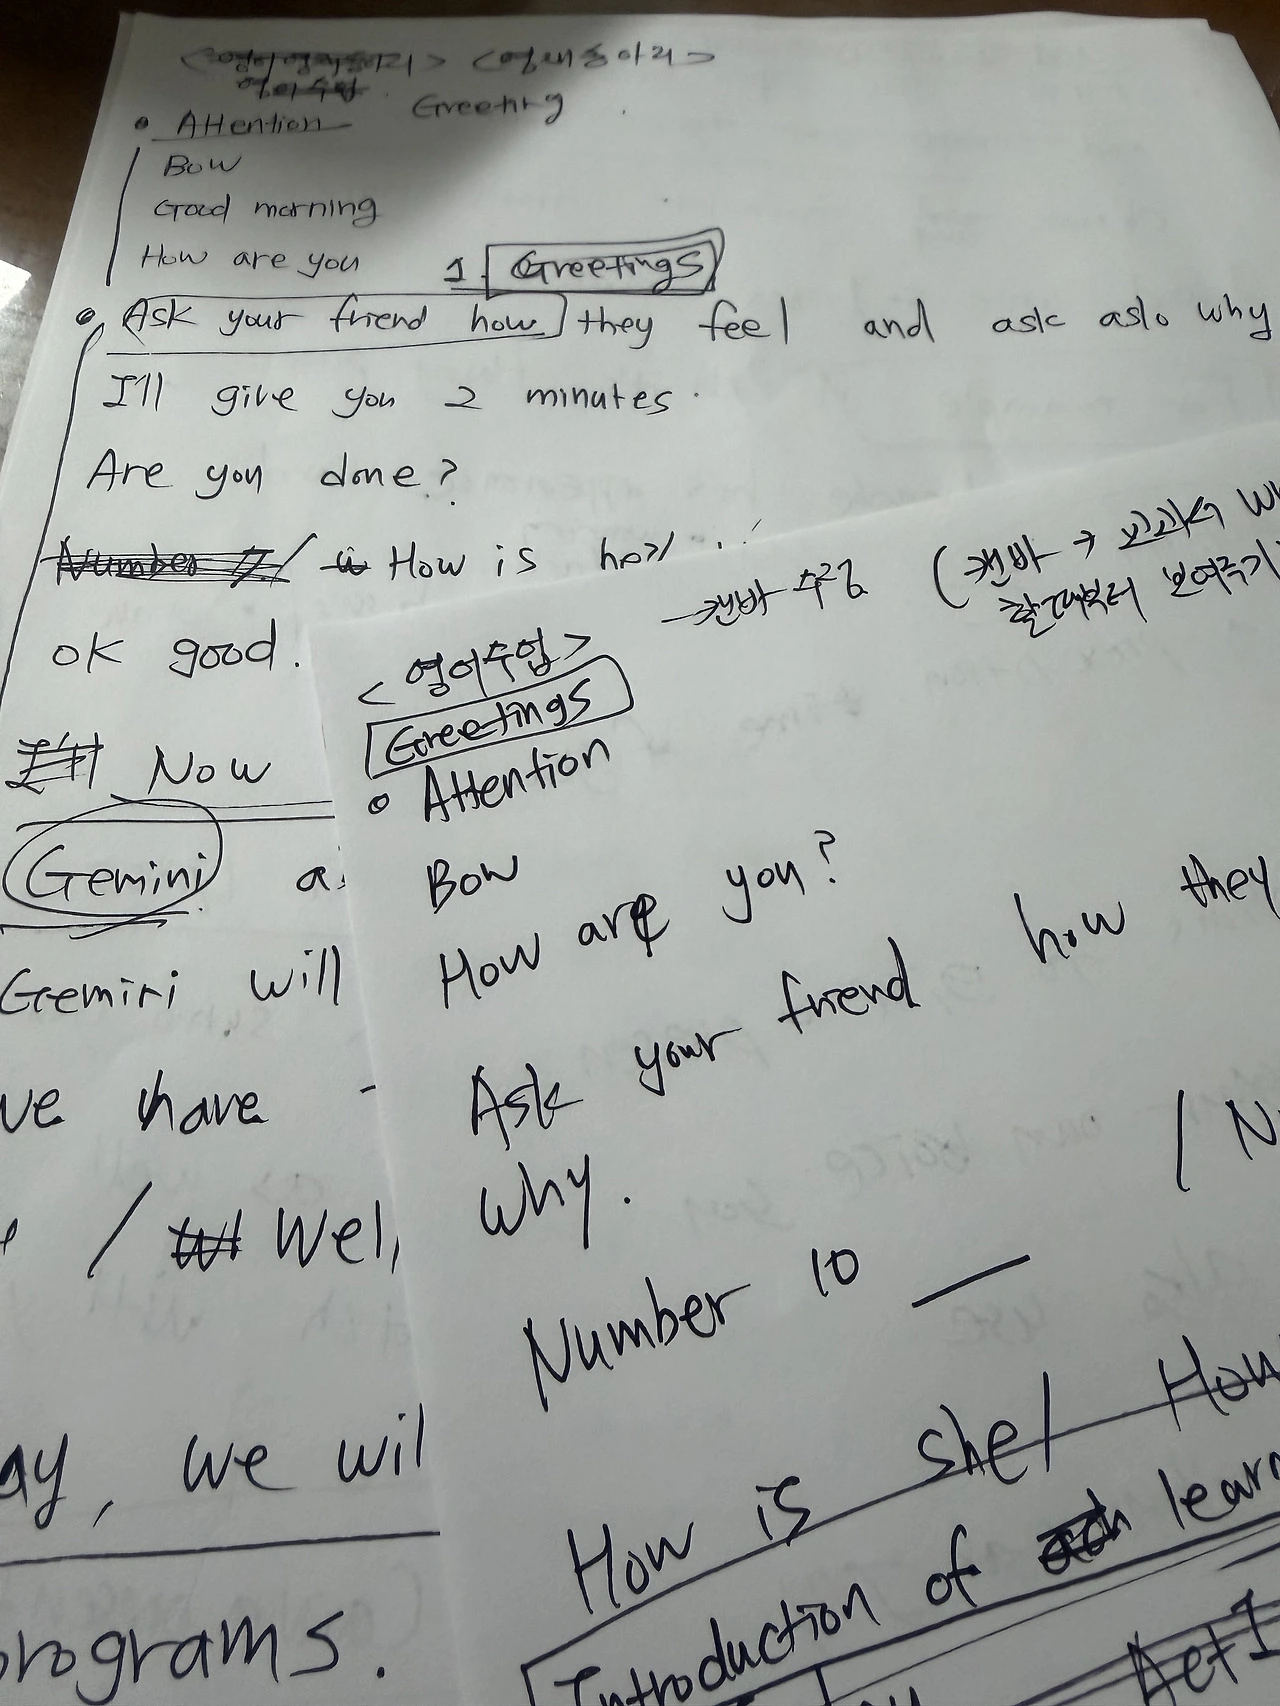 <영재동아리>
Greeting
• Attention
Bow
Good morning
How are you
1. Greetings
• Ask your friend how they feel and ask aslo why
I'll give you 2 minutes.
Are you done?
Number 7 / How is he
ok good.
Now
Gemini
Gemini will
ve have
/ Wel
ay, we wil
programs.
캔바 수정 (캔바 → 교과서
할때부터 보여주기
<영어수업>
Greetings
• Attention
Bow
How are you?
Ask your friend how they
why.
Number 10 — / N
How is she / How
Introduction of learn
Act 1